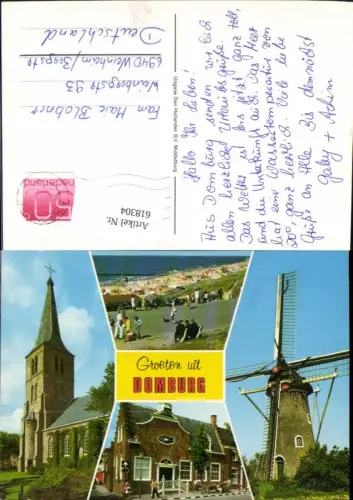 Hallo Ihr Lieben!
Aus Domburg senden wir Euch
allen herzliche Urlaubsgrüße.
Das Wetter ist bis jetzt ganz toll,
und die Unterkunft auch. Das Meer
hat eine Wassertemperatur von
20°, ganz herrlich. Viele liebe
Grüße an Alle bis demnächst
Gaby + Achim
Uitgave Den Hollander B.V. Middelburg
Artikel Nr.
618304
nederland
Fam. Blobner
Weinbergstr. 93
6940 Weinheim/Bergstr
Deutschland
Groeten uit
DOMBURG